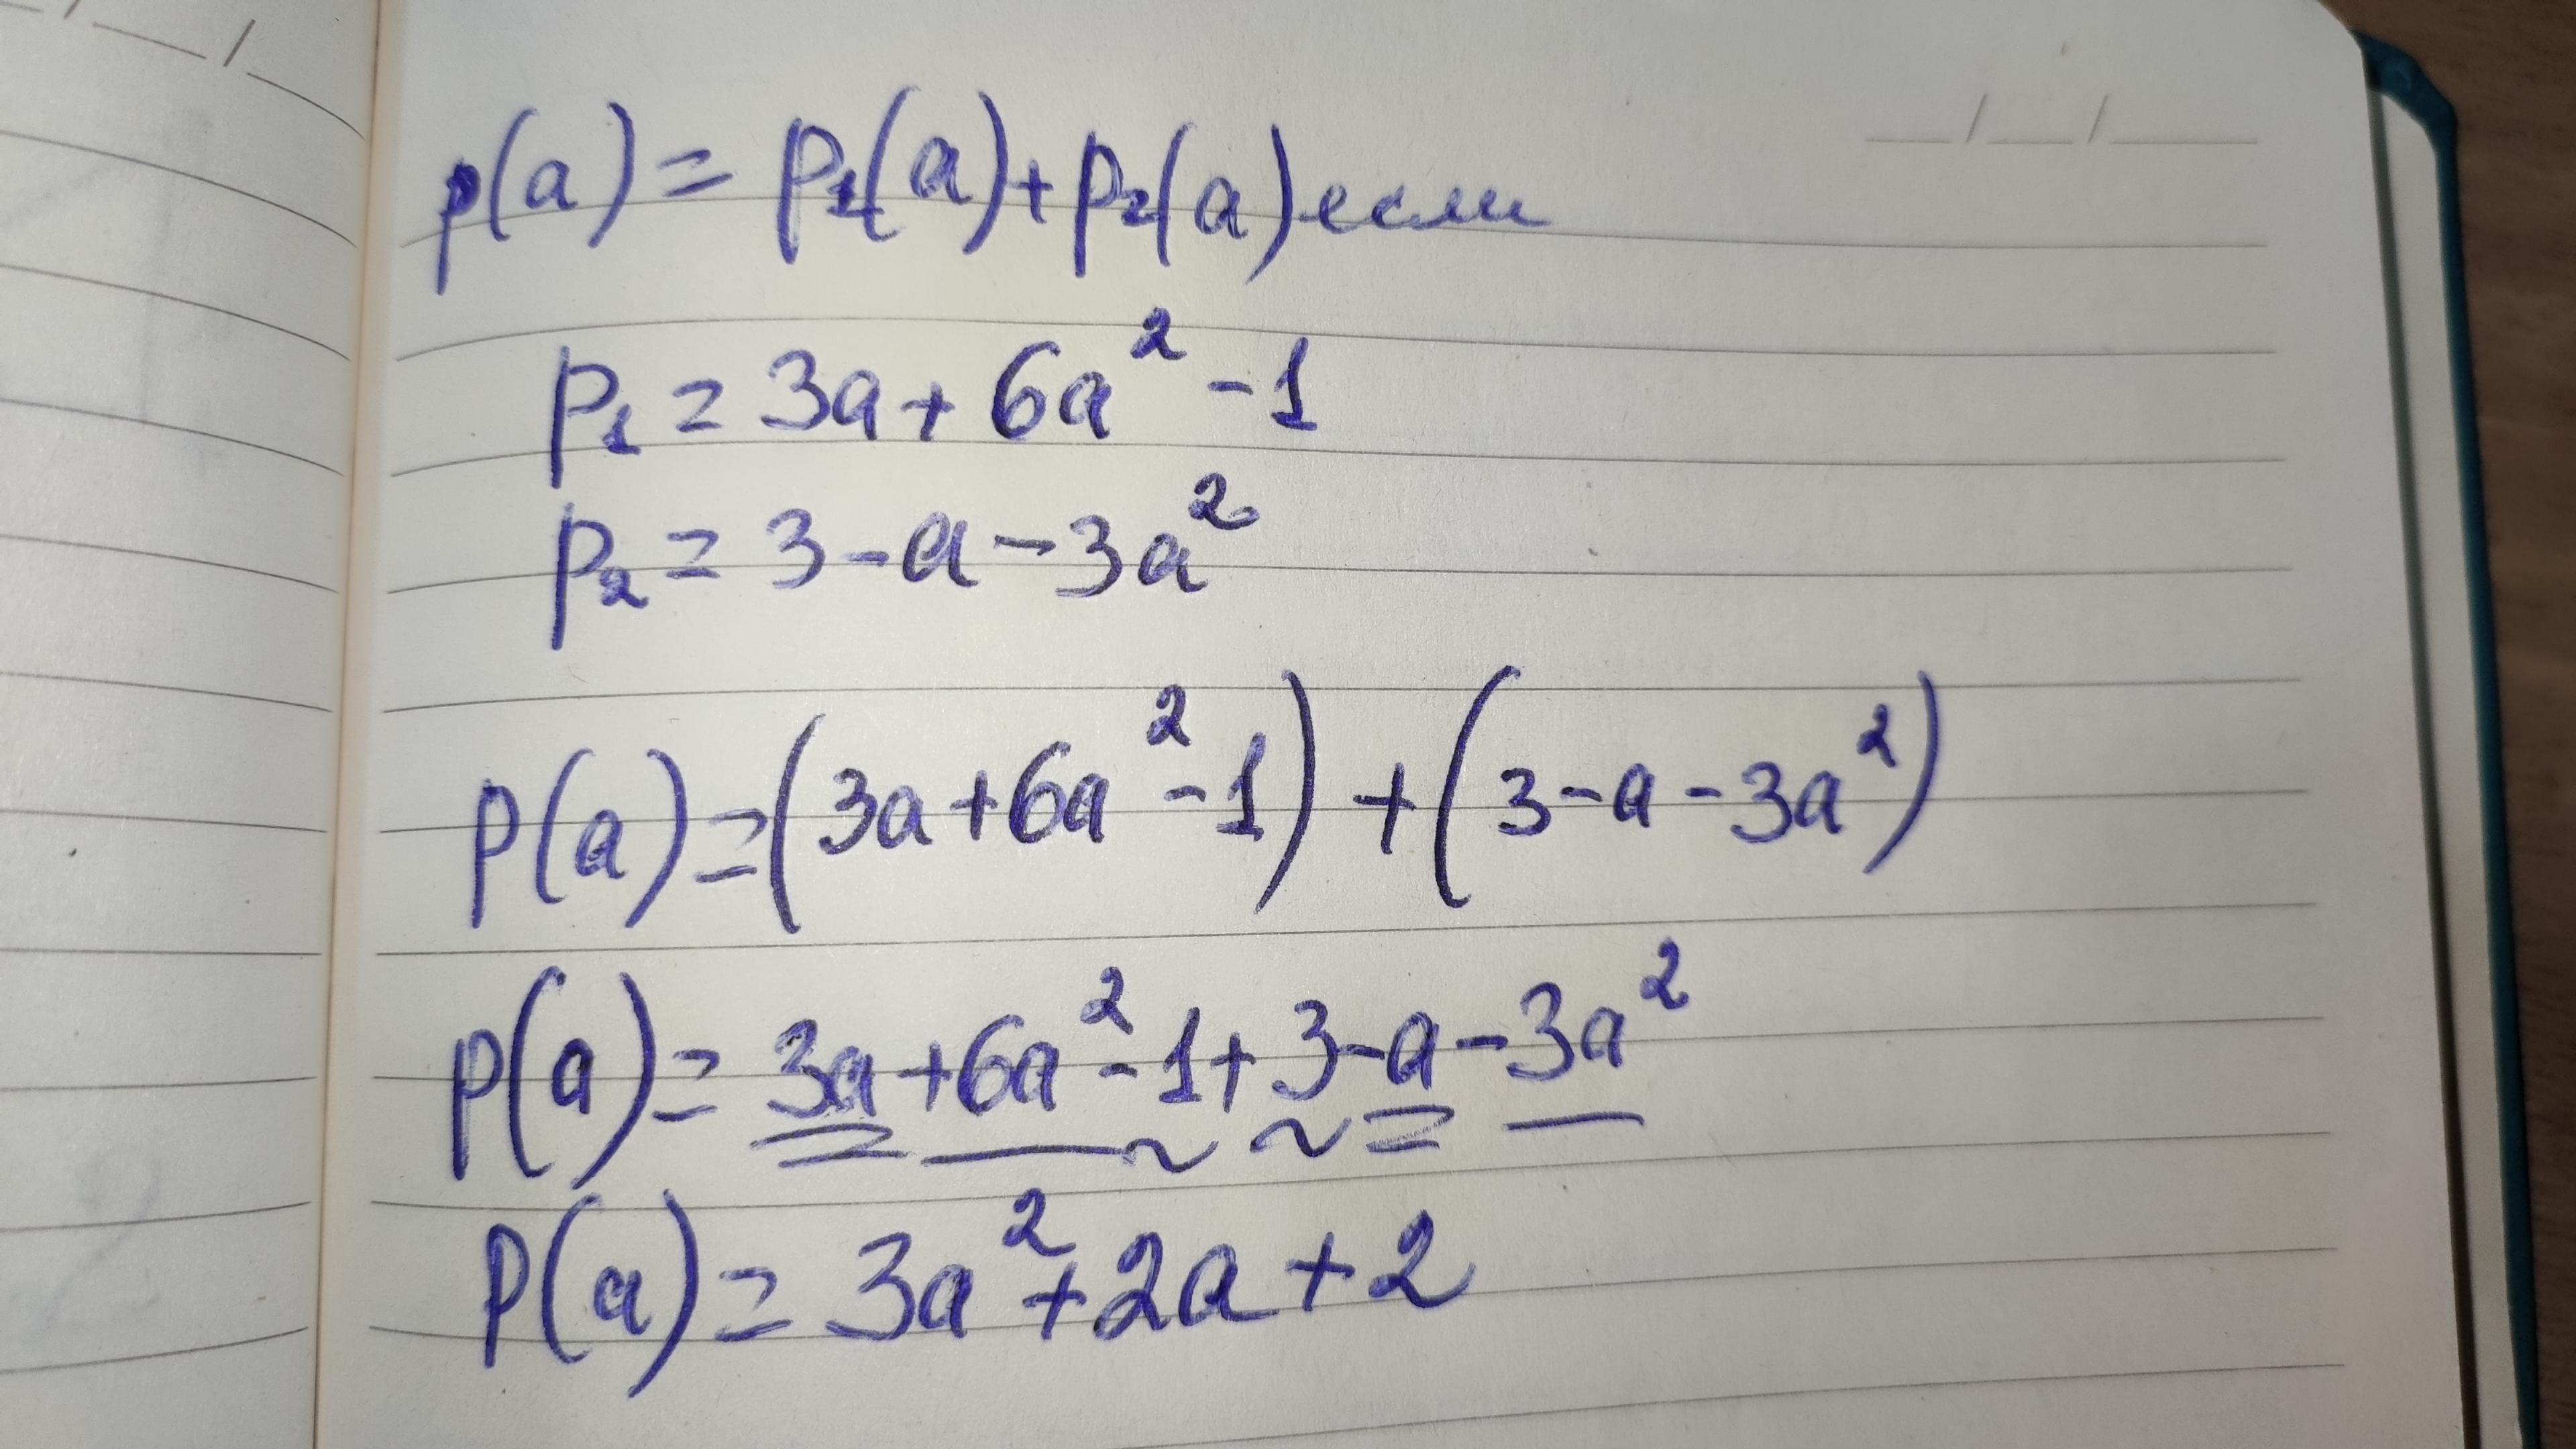 p(a) = p₁(a) + p₂(a) если
p₁ = 3a + 6a² - 1
p₂ = 3 - a - 3a²
p(a) = (3a + 6a² - 1) + (3 - a - 3a²)
p(a) = 3a + 6a² - 1 + 3 - a - 3a²
p(a) = 3a² + 2a + 2